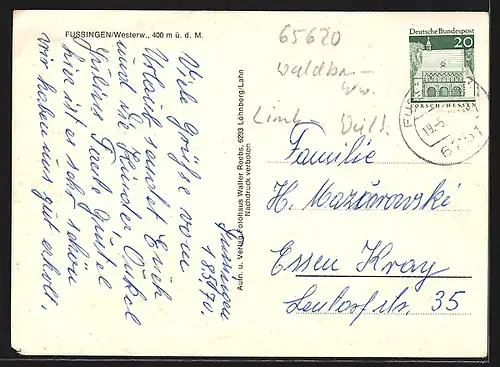 FUSSINGEN/Westerw., 400 m ü. d. M.
Viele Grüße vom
Urlaub sendet Euch
und die Kinder Onkel
Tante Gustel
hier ist es sehr schön
wir haben uns gut erholt.
Fussingen
18.5.71.
Aufn. u. Verlag Fotohaus Walter Roebs, 6293 Löhnberg/Lahn
Nachdruck verboten
65620
Waldbrunn
Ww.
Deutsche Bundespost
20
LORSCH/HESSEN
19.5.
Familie
H. Mazurowski
Essen Kray
35